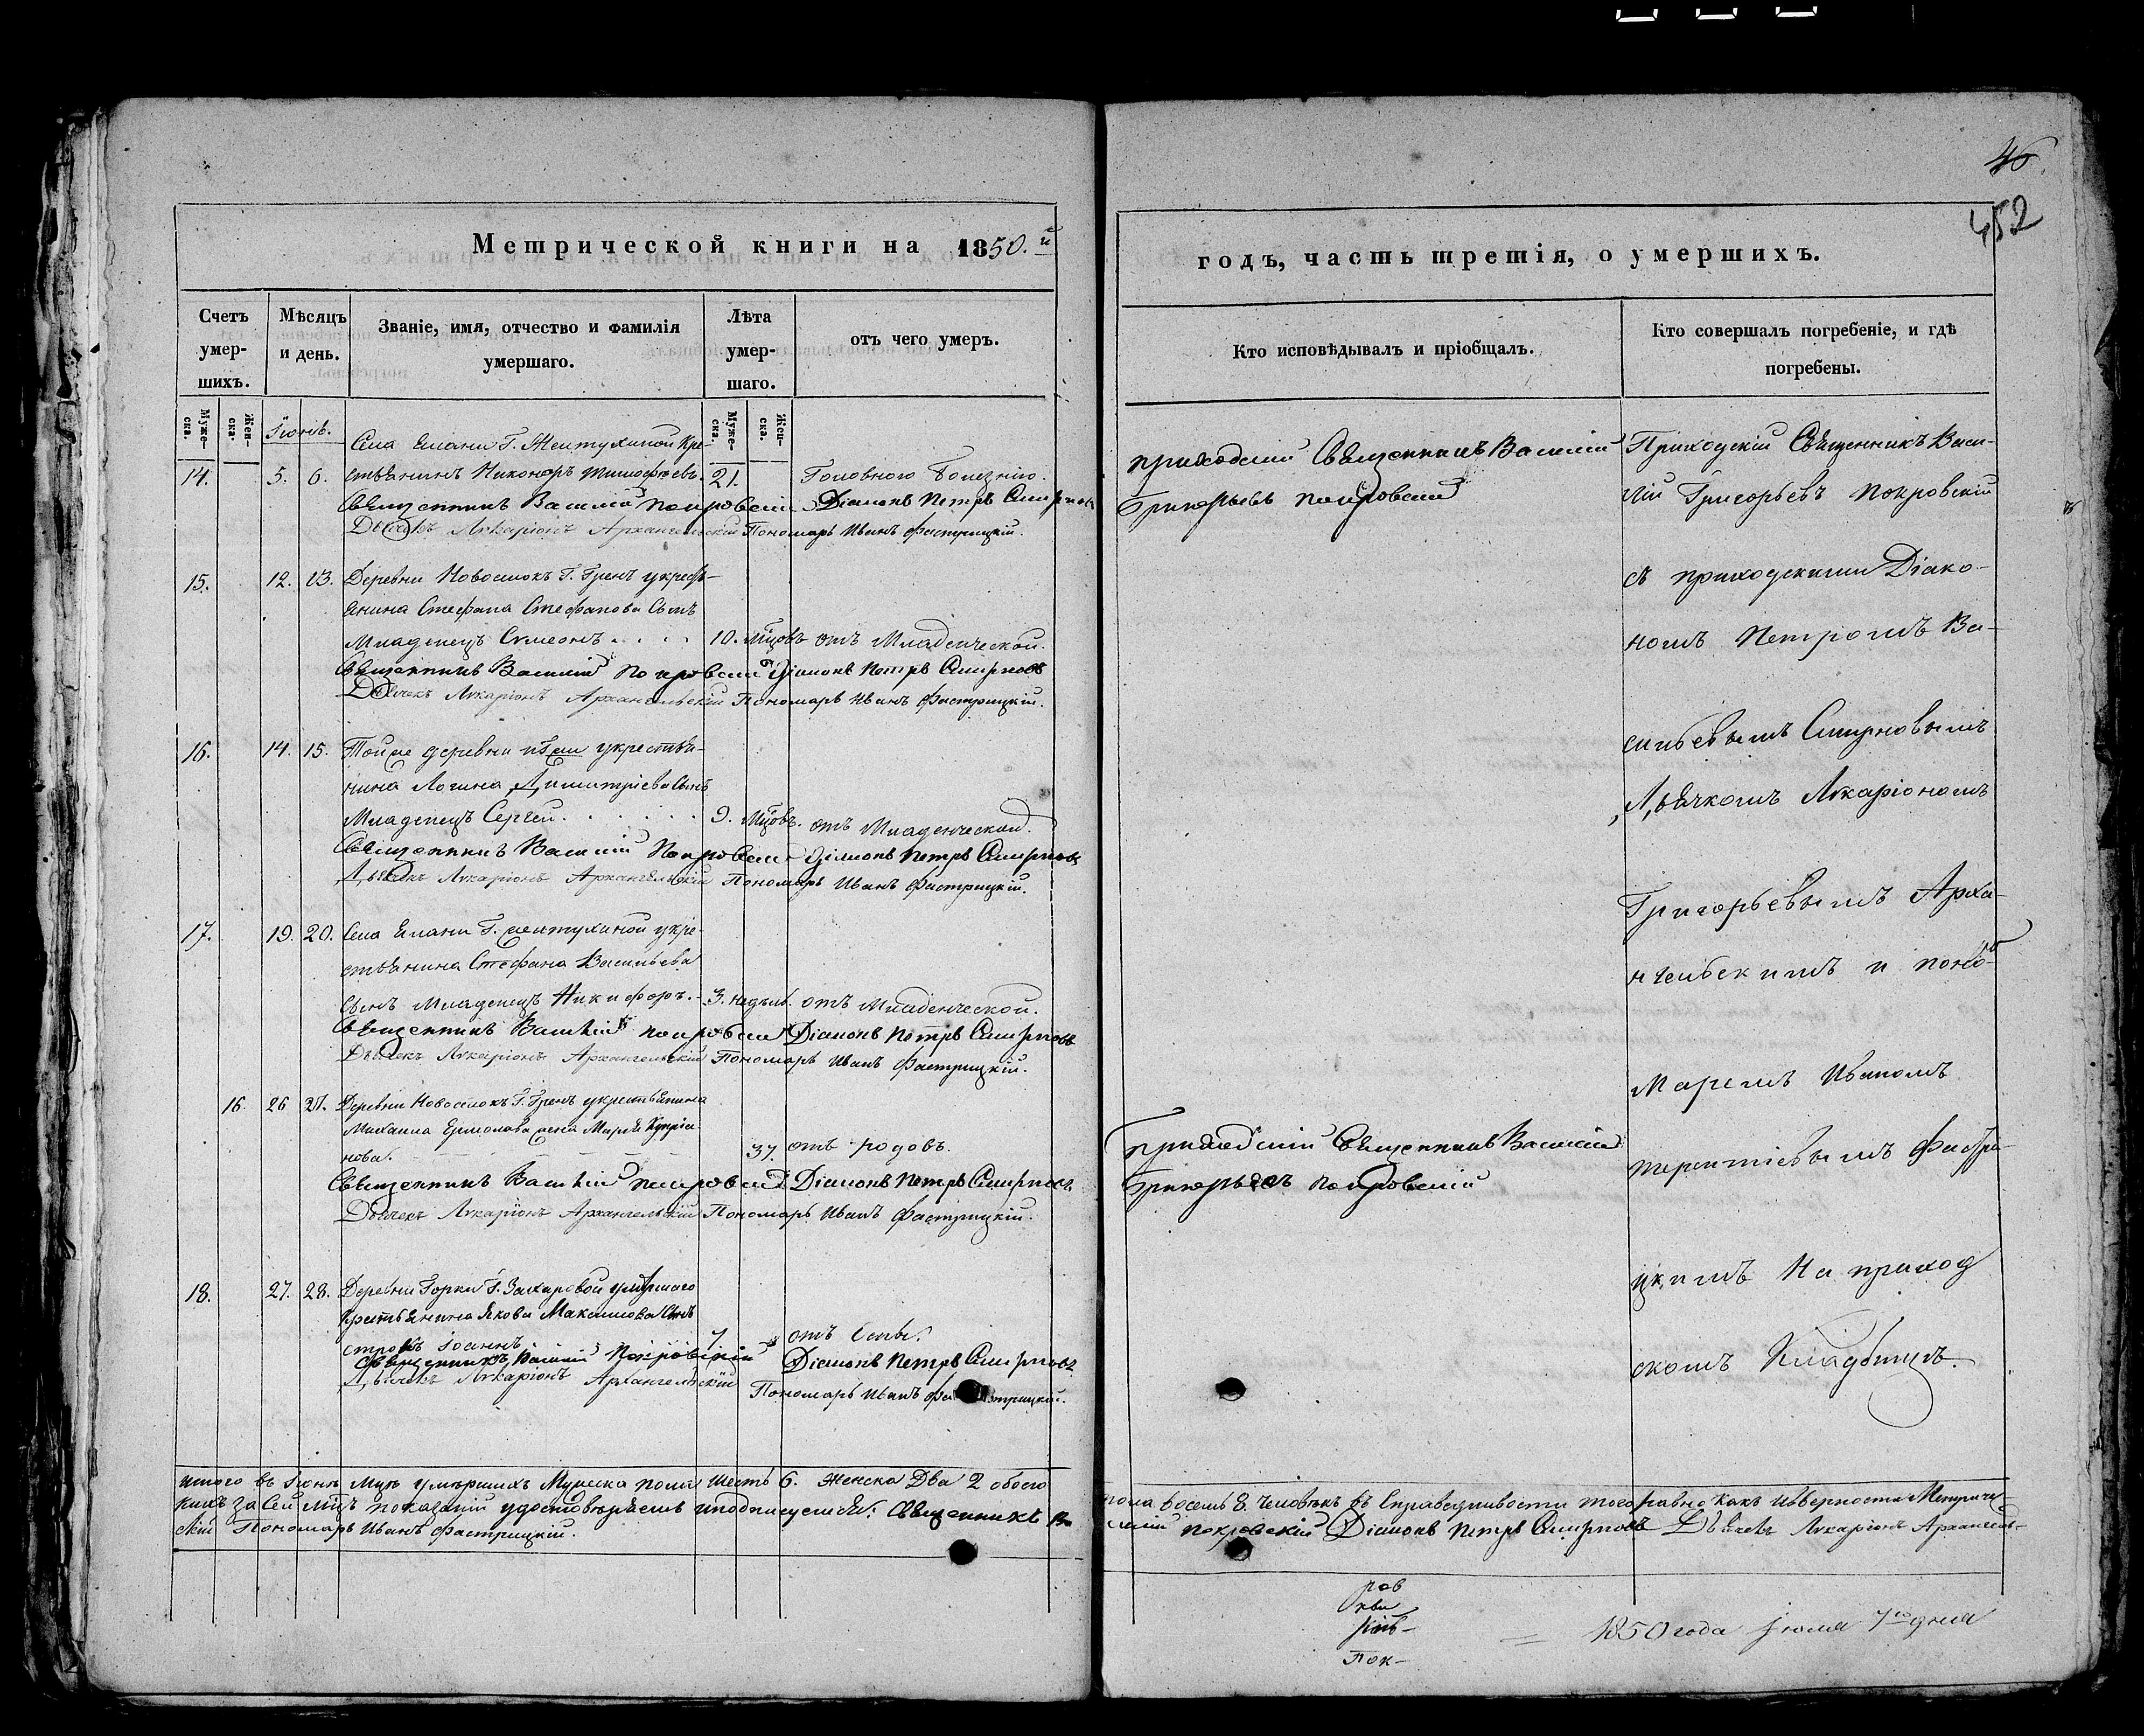 46.
452
Метрической книги на 1850.й
годъ, часть третія, о умершихъ.
Счетъ умер-шихъ.
Мѣсяцъ и день.
Званіе, имя, отчество и фамилія умершаго.
Лѣта умер-шаго.
отъ чего умеръ.
Кто исповѣдывалъ и пріобщалъ.
Кто совершалъ погребеніе, и гдѣ погребены.
Муже-ска.
Жен-ска.
Муже-ска.
Жен-ска.
Іюнь.
Села Елани Г. Желтухиной кре-
14. 5. 6. стьянинъ Никоноръ Тимофѣевъ. 21. Головною болезнію.
Священникъ Василій Покровскій Діаконъ Петръ Смирновъ
Дьячекъ Ларіонъ Архангельскій Пономарь Иванъ Фастрицкій.
15. 12. 13. Деревни Новоселокъ Г. укресть-
янина Стефана Стефанова сынъ
Младенецъ Симеонъ. . . . 10. мцовъ отъ Младенческой.
Священникъ Василій Покровскій Діаконъ Петръ Смирновъ
Дьячекъ Ларіонъ Архангельскій Пономарь Иванъ Фастрицкій.
16. 14. 15. Тойже деревни укрестья-
нина Логина Димитріева сынъ
Младенецъ Сергей. . . . . . 9. мцовъ. отъ Младенческой.
Священникъ Василій Покровскій Діаконъ Петръ Смирновъ
Дьячекъ Ларіонъ Архангельскій Пономарь Иванъ Фастрицкій.
17. 19. 20. Села Елани Г. Желтухиной укре-
стьянина Стефана Васильева
сынъ младенецъ Никифоръ. - 3. недель. отъ Младенческой.
Священникъ Василій Покровскій Діаконъ Петръ Смирновъ
Дьячекъ Ларіонъ Архангельскій Пономарь Иванъ Фастрицкій.
16. 26 27. Деревни Новоселокъ Г. укрестьянина
Михаила Ермолова жена Марья Купріа-
нова. 37. отъ родовъ.
Священникъ Василій Покровскій Діаконъ Петръ Смирновъ
Дьячекъ Ларіонъ Архангельскій Пономарь Иванъ Фастрицкій.
18. 27. 28. Деревни Горки Г. Захаровой умершаго
крестьянина Якова Максимова сынъ
Іоаннъ 7 отъ
Священникъ Василій Покровскій Діаконъ Петръ Смирновъ
Дьячекъ Ларіонъ Архангельскій Пономарь Иванъ Фастрицкій.
приходскій Священникъ Василій
Григорьевъ Покровскій
приходскій Священникъ Василій
Григорьевъ Покровскій
Приходскій Священникъ Васи-
лій Григорьевъ Покровскій
съ приходскими Діако-
номъ Петромъ Ва-
сильевымъ Смирновымъ
Дьячкомъ Ларіономъ
Григорьевымъ Арха-
нгельскимъ и поно-
маремъ Иваномъ
Терентіевымъ Фастри-
цкимъ На приход
скомъ Кладбищѣ.
Итого въ Іюнѣ мцѣ умершихъ Мужеска пола шесть 6. женска два 2 обоего
пола восемь 8. человѣкъ въ справедливости того равно какъ и верности Метриче-
кихъ за сей мцъ показаній удостовѣряемъ и подписуемся: Священникъ Ва-
силій Покровскій Діаконъ Петръ Смирновъ Дьячекъ Ларіонъ Архангель-
скій Пономарь Иванъ Фастрицкій.
Пок-
1850 года Іюля 7го дня